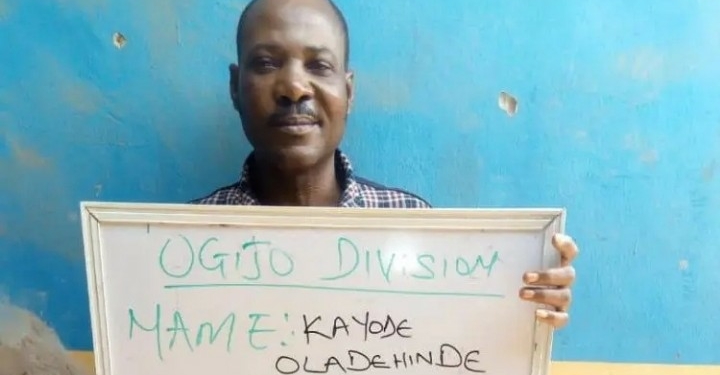 OGIJO DIVISION
NAME:. KAYODE
OLADEHINDE